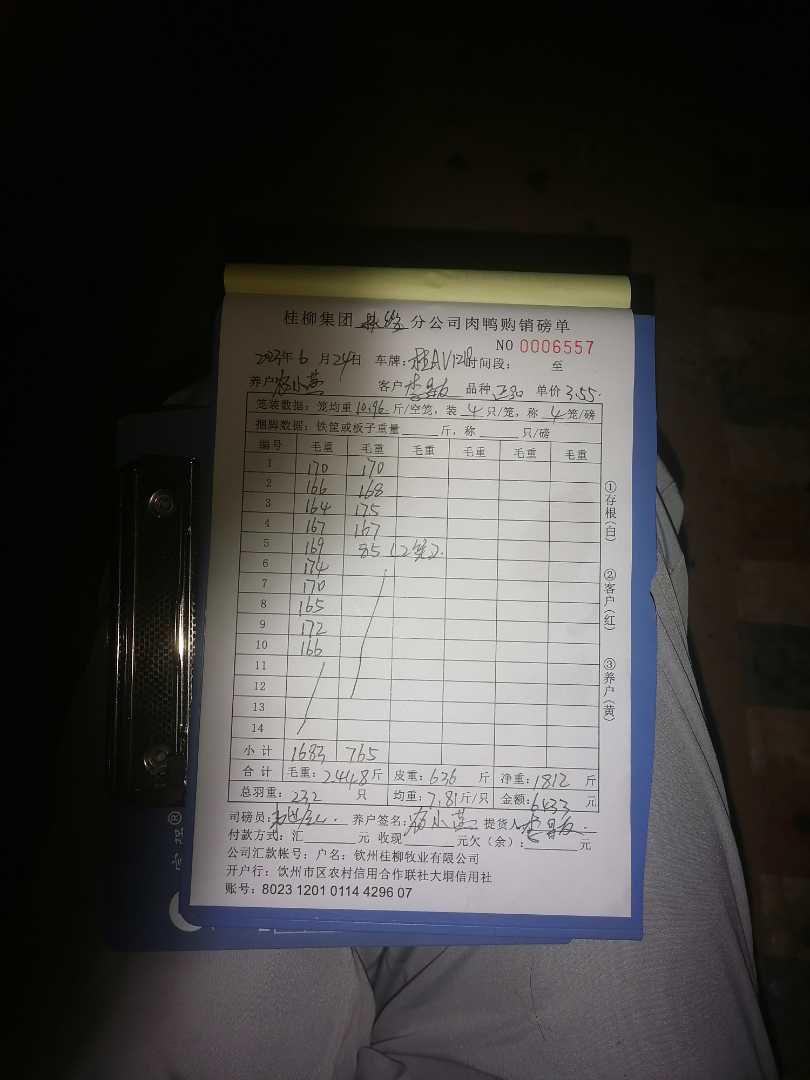 桂柳集团 分公司肉鸭购销磅单
NO 0006557
2023年6月24日 车牌:桂AV 时间段: 至
养户 小燕 客户 李 品种 正30 单价 3.55.
笼装数据:笼均重 10.96 斤/空笼,装 4 只/笼,称 4 笼/磅
捆脚数据:铁筐或板子重量 斤,称 只/磅
编号 毛重 毛重 毛重 毛重 毛重 毛重
1 170 170
2 166 168
3 164 175
4 167 167
5 169 85 (2笼).
6 174
7 170
8 165
9 172
10 166
11
12
13
14
小计 1683 765
合计 毛重:2448斤 皮重:636 斤 净重:1812 斤
总羽重:232 只 均重:7.81斤/只 金额:6433 元
司磅员: 养户签名: 小燕 提货人:李
付款方式:汇 元 收现 元欠(余): 元
公司汇款帐号:户名:钦州桂柳牧业有限公司
开户行:钦州市区农村信用合作联社大垌信用社
账号:8023 1201 0114 4296 07
①存根(白)
②客户(红)
③养户(黄)